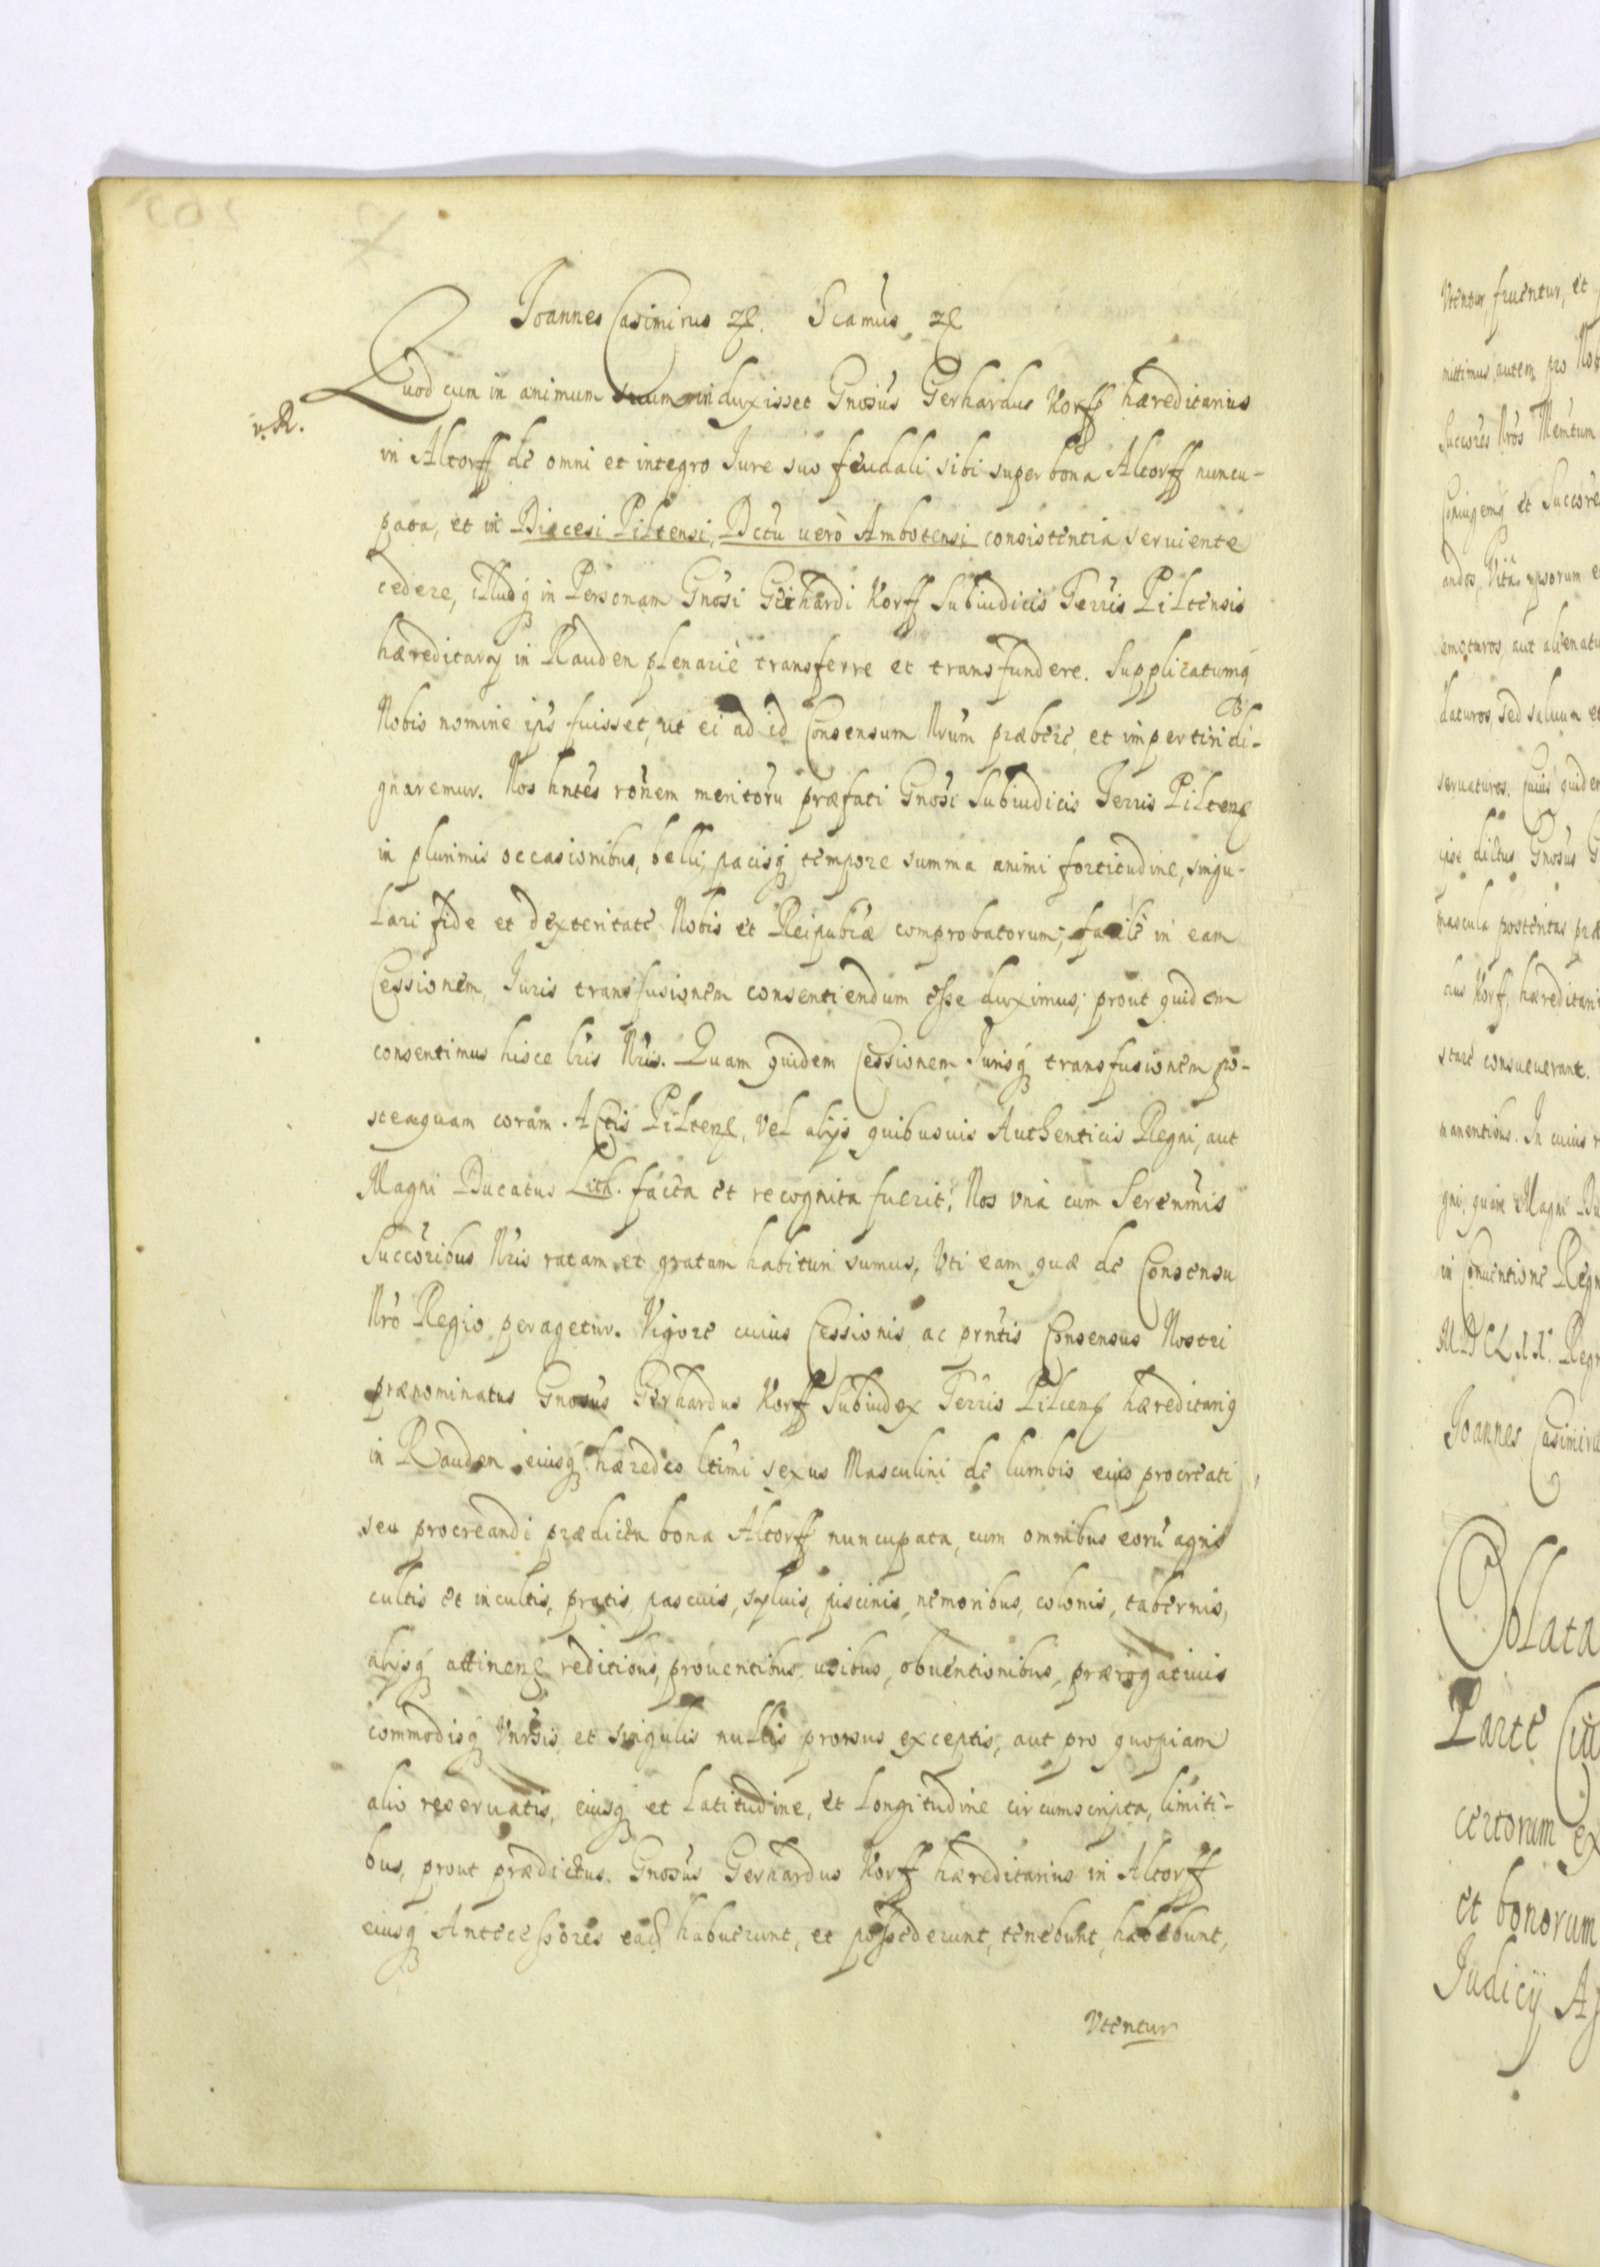 Joannes Casimirus etc. Scamus etc
Quod cum in animum suum induxisset Gnosus Gerhardus Korff hæreditarius
v. R.
in Altorff de omni et integro Jure suo feudali sibi super bona Altorff nuncu-
pata, et in Diæcesi Piltensi, Dctu verò Ambotensi consistentia serviente
cedere, illudq in Personam Gnosi Gerhardi Korff Subiudicis Terris Piltensis
hæreditarij in Rauden plenariè transferre et transfundere. Supplicatumq
Nobis nomine ips fuisset, ut ei ad id Consensum Nrum præbere, et impertiri di-
gnaremur. Nos hntes ronem meritoru præfati Gnosi Subiudicis Terris Pilten
in plurimis occasionibus, belli, pacisq tempore summa animi fortitudine, singu-
lari fide et dexteritate Nobis et Reipublæ comprobatorum; facilè in eam
Cessionem, Juris transfusionem consentiendum esse duximus; prout quidem
consentimus hisce lris Nris. Quam quidem Cessionem Jurisq transfusionem po-
steaquam coram Actis Pilten, vel alijs quibusvis Authenticis Regni, aut
Magni Ducatus Lith. facta et recognita fuerit, Nos vnà cum Serenmis
Succoribus Nris ratam et gratam habituri sumus, Vti eam quæ de Consensu
Nro Regio peragetur. Vigore cuius Cessionis ac prntis Consensus Nostri
prænominatus Gnosus Gerhardus Korff Subiudex Terris Pilten hæreditarig
in Rauden eiusq hæredes ltimi sexus Masculini de lumbis eius procreati
seu procreandi prædicta bona Altorff nuncupata, cum omnibus eoru agris
cultis et incultis, pratis, pascuis, sylvis, piscinis, nemoribus, colonis, tabernis,
alijsq attinen reditibus, proventibus, usibus, obventionibus, prærogativis
commodisq Vnrsis, et singulis nullis prorsus exceptis, aut pro quopiam
alio reservatis, eiusq et Latitudine, et Longitudine circumscripta, limiti-
bus, prout prædictus Gnosus Gerhardus Korff hæreditarius in Altorff
eiusq Antecessores ead habuerunt, et possederunt, tenebunt, habebunt,
Vtentur
Vtentur, fruentur, et
mittimus autem pro Nob
Succores Nros Memtum
Coniugemq et Succore
andos, Vita ipsorum e
emoturos, aut alienatu
daturos, sed salvum et
servaturos. Cuius quidem
ipse dictus Gnosus G
mascula posteritas præ
dus Korff hæreditari
stare consueverant.
manentibus. In cuius r
gni, quàm Magni Du
in Conventione Regn
Regn
Joannes Casimirus
Oblata
Parte Cu
certorum ex
et bonorum
Judicij As